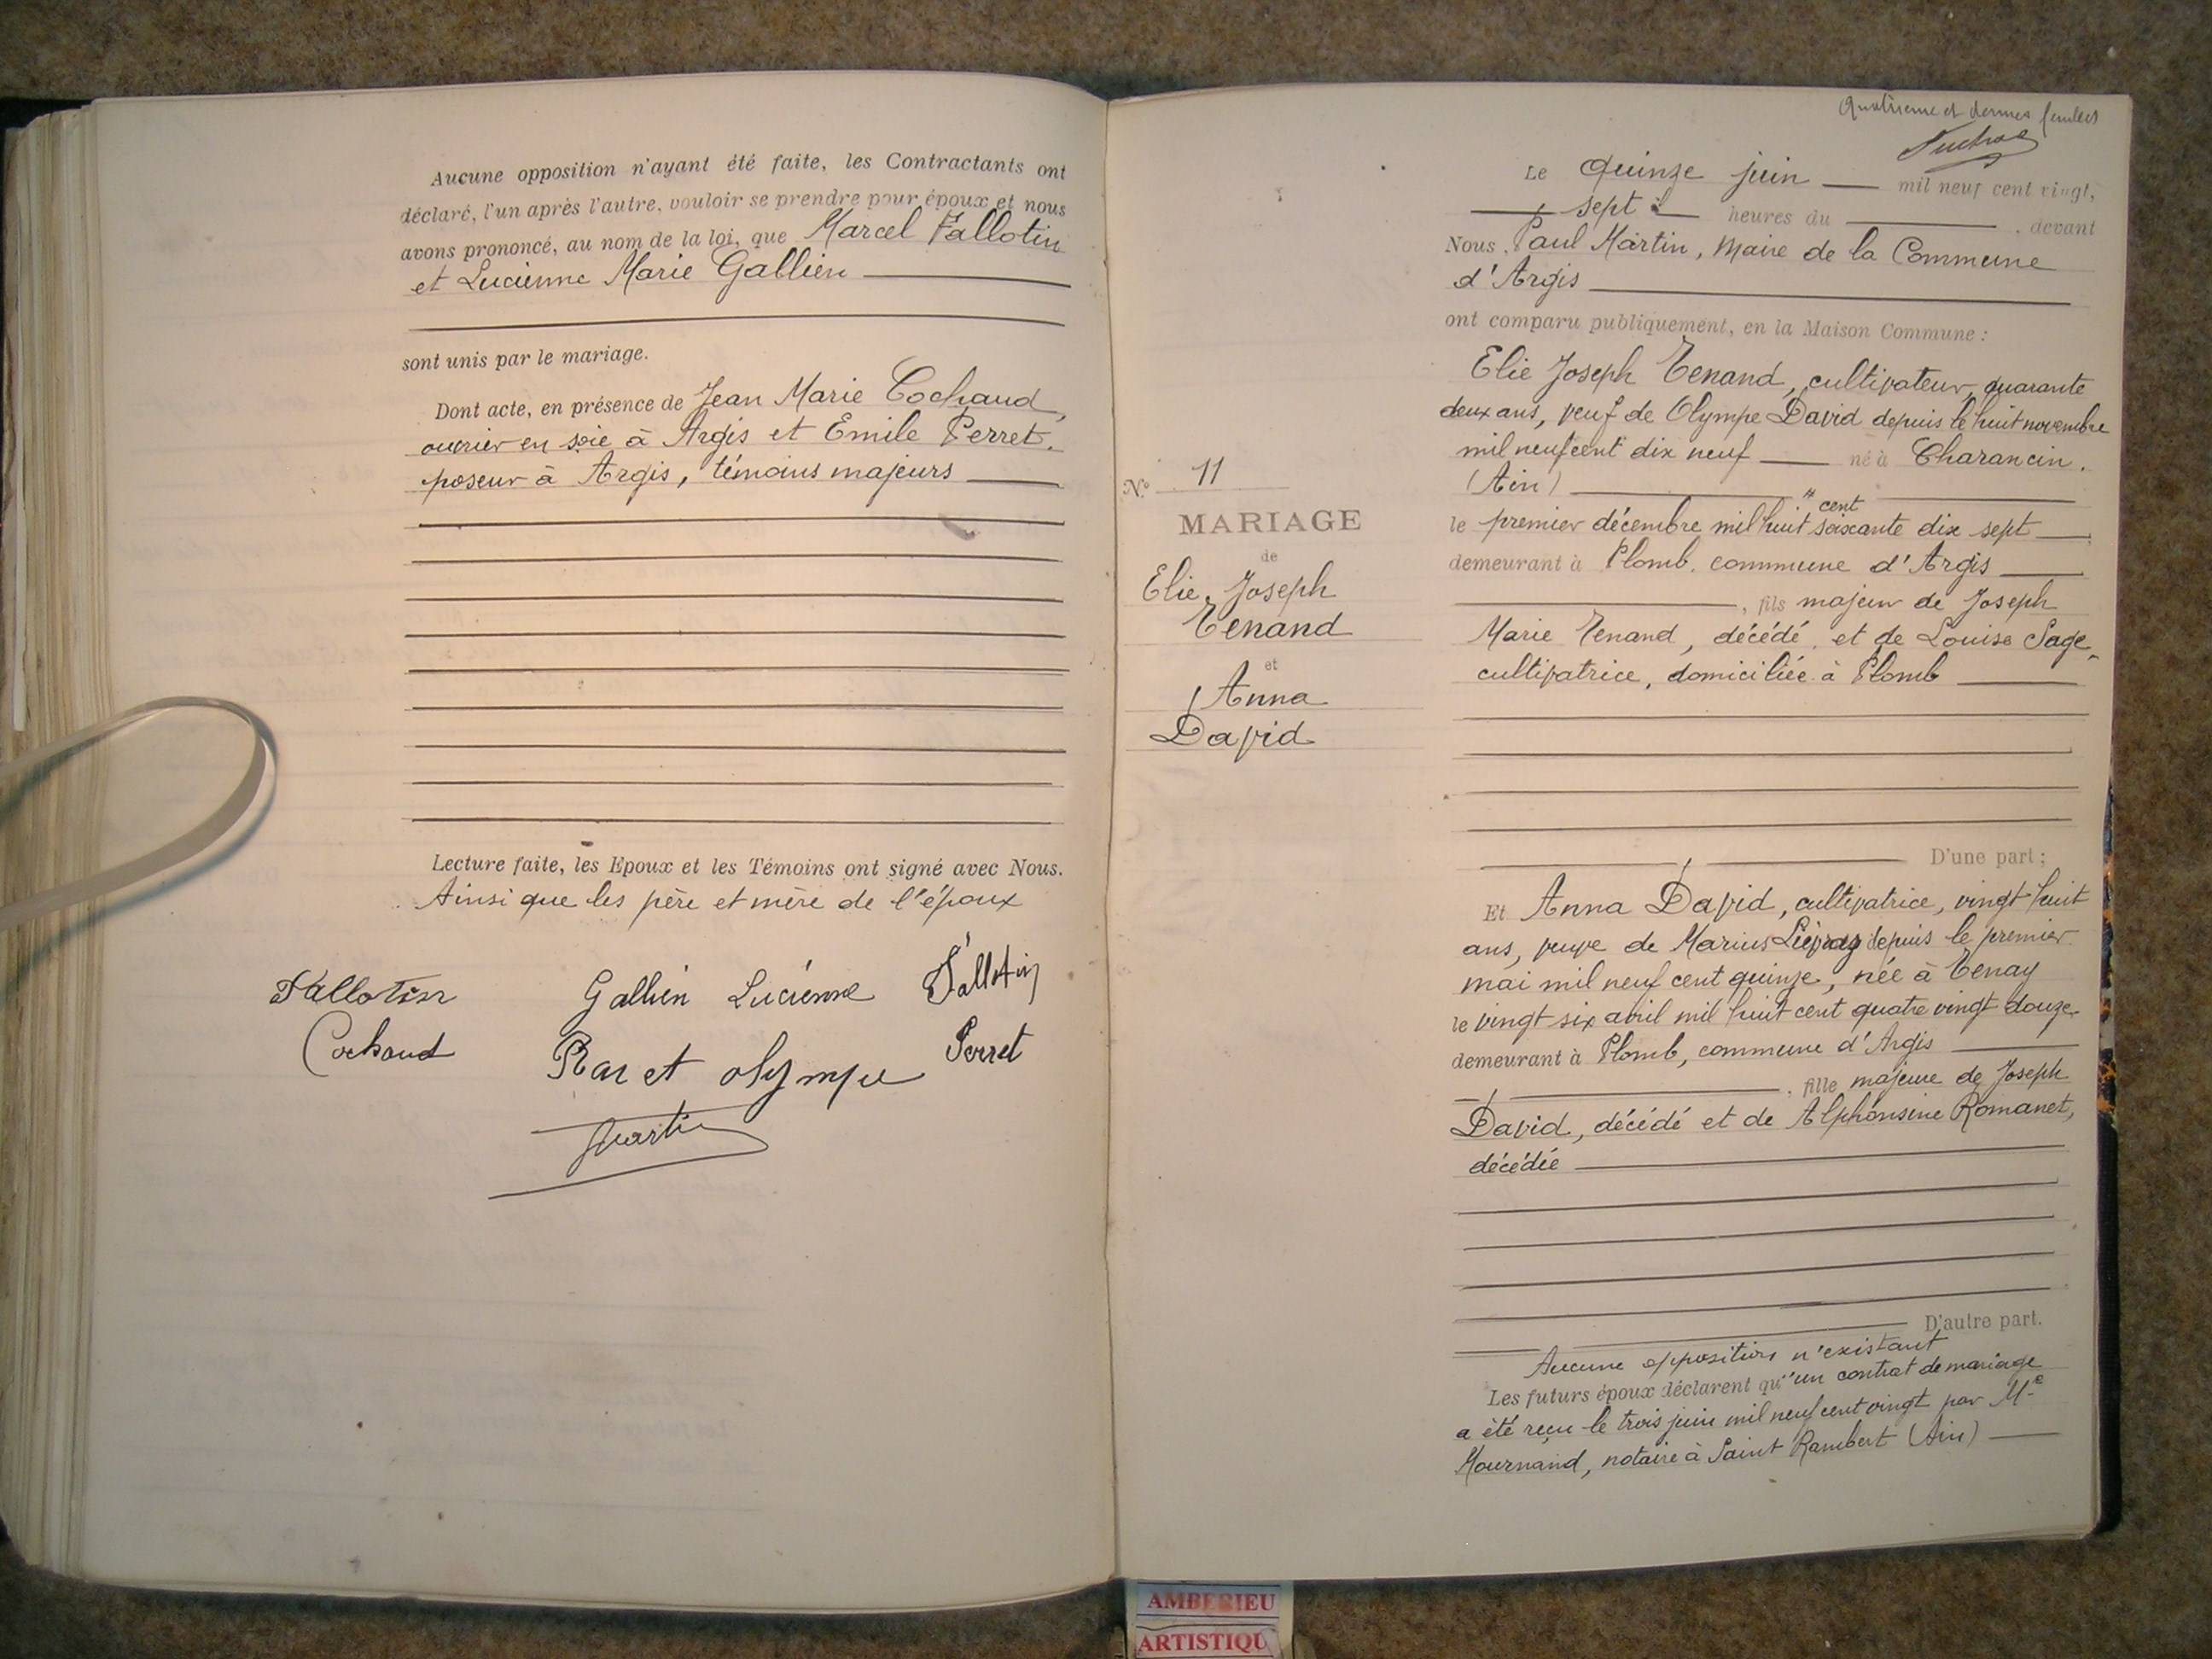 Aucune opposition n'ayant été faite, les Contractants ont
déclaré, l'un après l'autre, vouloir se prendre pour époux et nous
avons prononcé, au nom de la loi, que Marcel Fallotin
et Lucienne Marie Gallien
sont unis par le mariage.
Dont acte, en présence de Jean Marie Cochaud,
ouvrier en soie à Argis et Emile Perret,
poseur à Argis, témoins majeurs
Lecture faite, les Epoux et les Témoins ont signé avec Nous.
Ainsi que les père et mère de l'époux
Fallotin Gallien Lucienne Fallotin
Cochaud olympe Perret
Martin
Quatrième et dernier feuillet
Le quinze juin mil neuf cent vingt,
sept heures du , devant
Nous, Paul Martin, Maire de la Commune
d'Argis
ont comparu publiquement, en la Maison Commune :
Elie Joseph Tenand, cultivateur, quarante
deux ans, veuf de Olympe David depuis le huit novembre
mil neuf cent dix neuf né à Charancin.
(Ain)
le premier décembre mil huit cent soixante dix sept
demeurant à Plomb, commune d'Argis
, fils majeur de Joseph
Marie Tenand, décédé, et de Louise Sage,
cultivatrice, domiciliée à Plomb
D'une part ;
N° 11
MARIAGE
de
Elie, Joseph
Tenand
et
Anna
David
Et Anna David, cultivatrice, vingt huit
ans, veuve de Marius depuis le premier
mai mil neuf cent quinze, née à Tenay
le vingt six avril mil huit cent quatre vingt douze
demeurant à Plomb, commune d'Argis
, fille majeure de Joseph
David, décédé et de Alphonsine Romanet,
décédée
D'autre part.
Aucune opposition n'existant
Les futurs époux déclarent qu'un contrat de mariage
a été reçu le trois juin mil neuf cent vingt par Me
Mournand, notaire à Saint Rambert (Ain)
AMBERIEU
ARTISTIQU